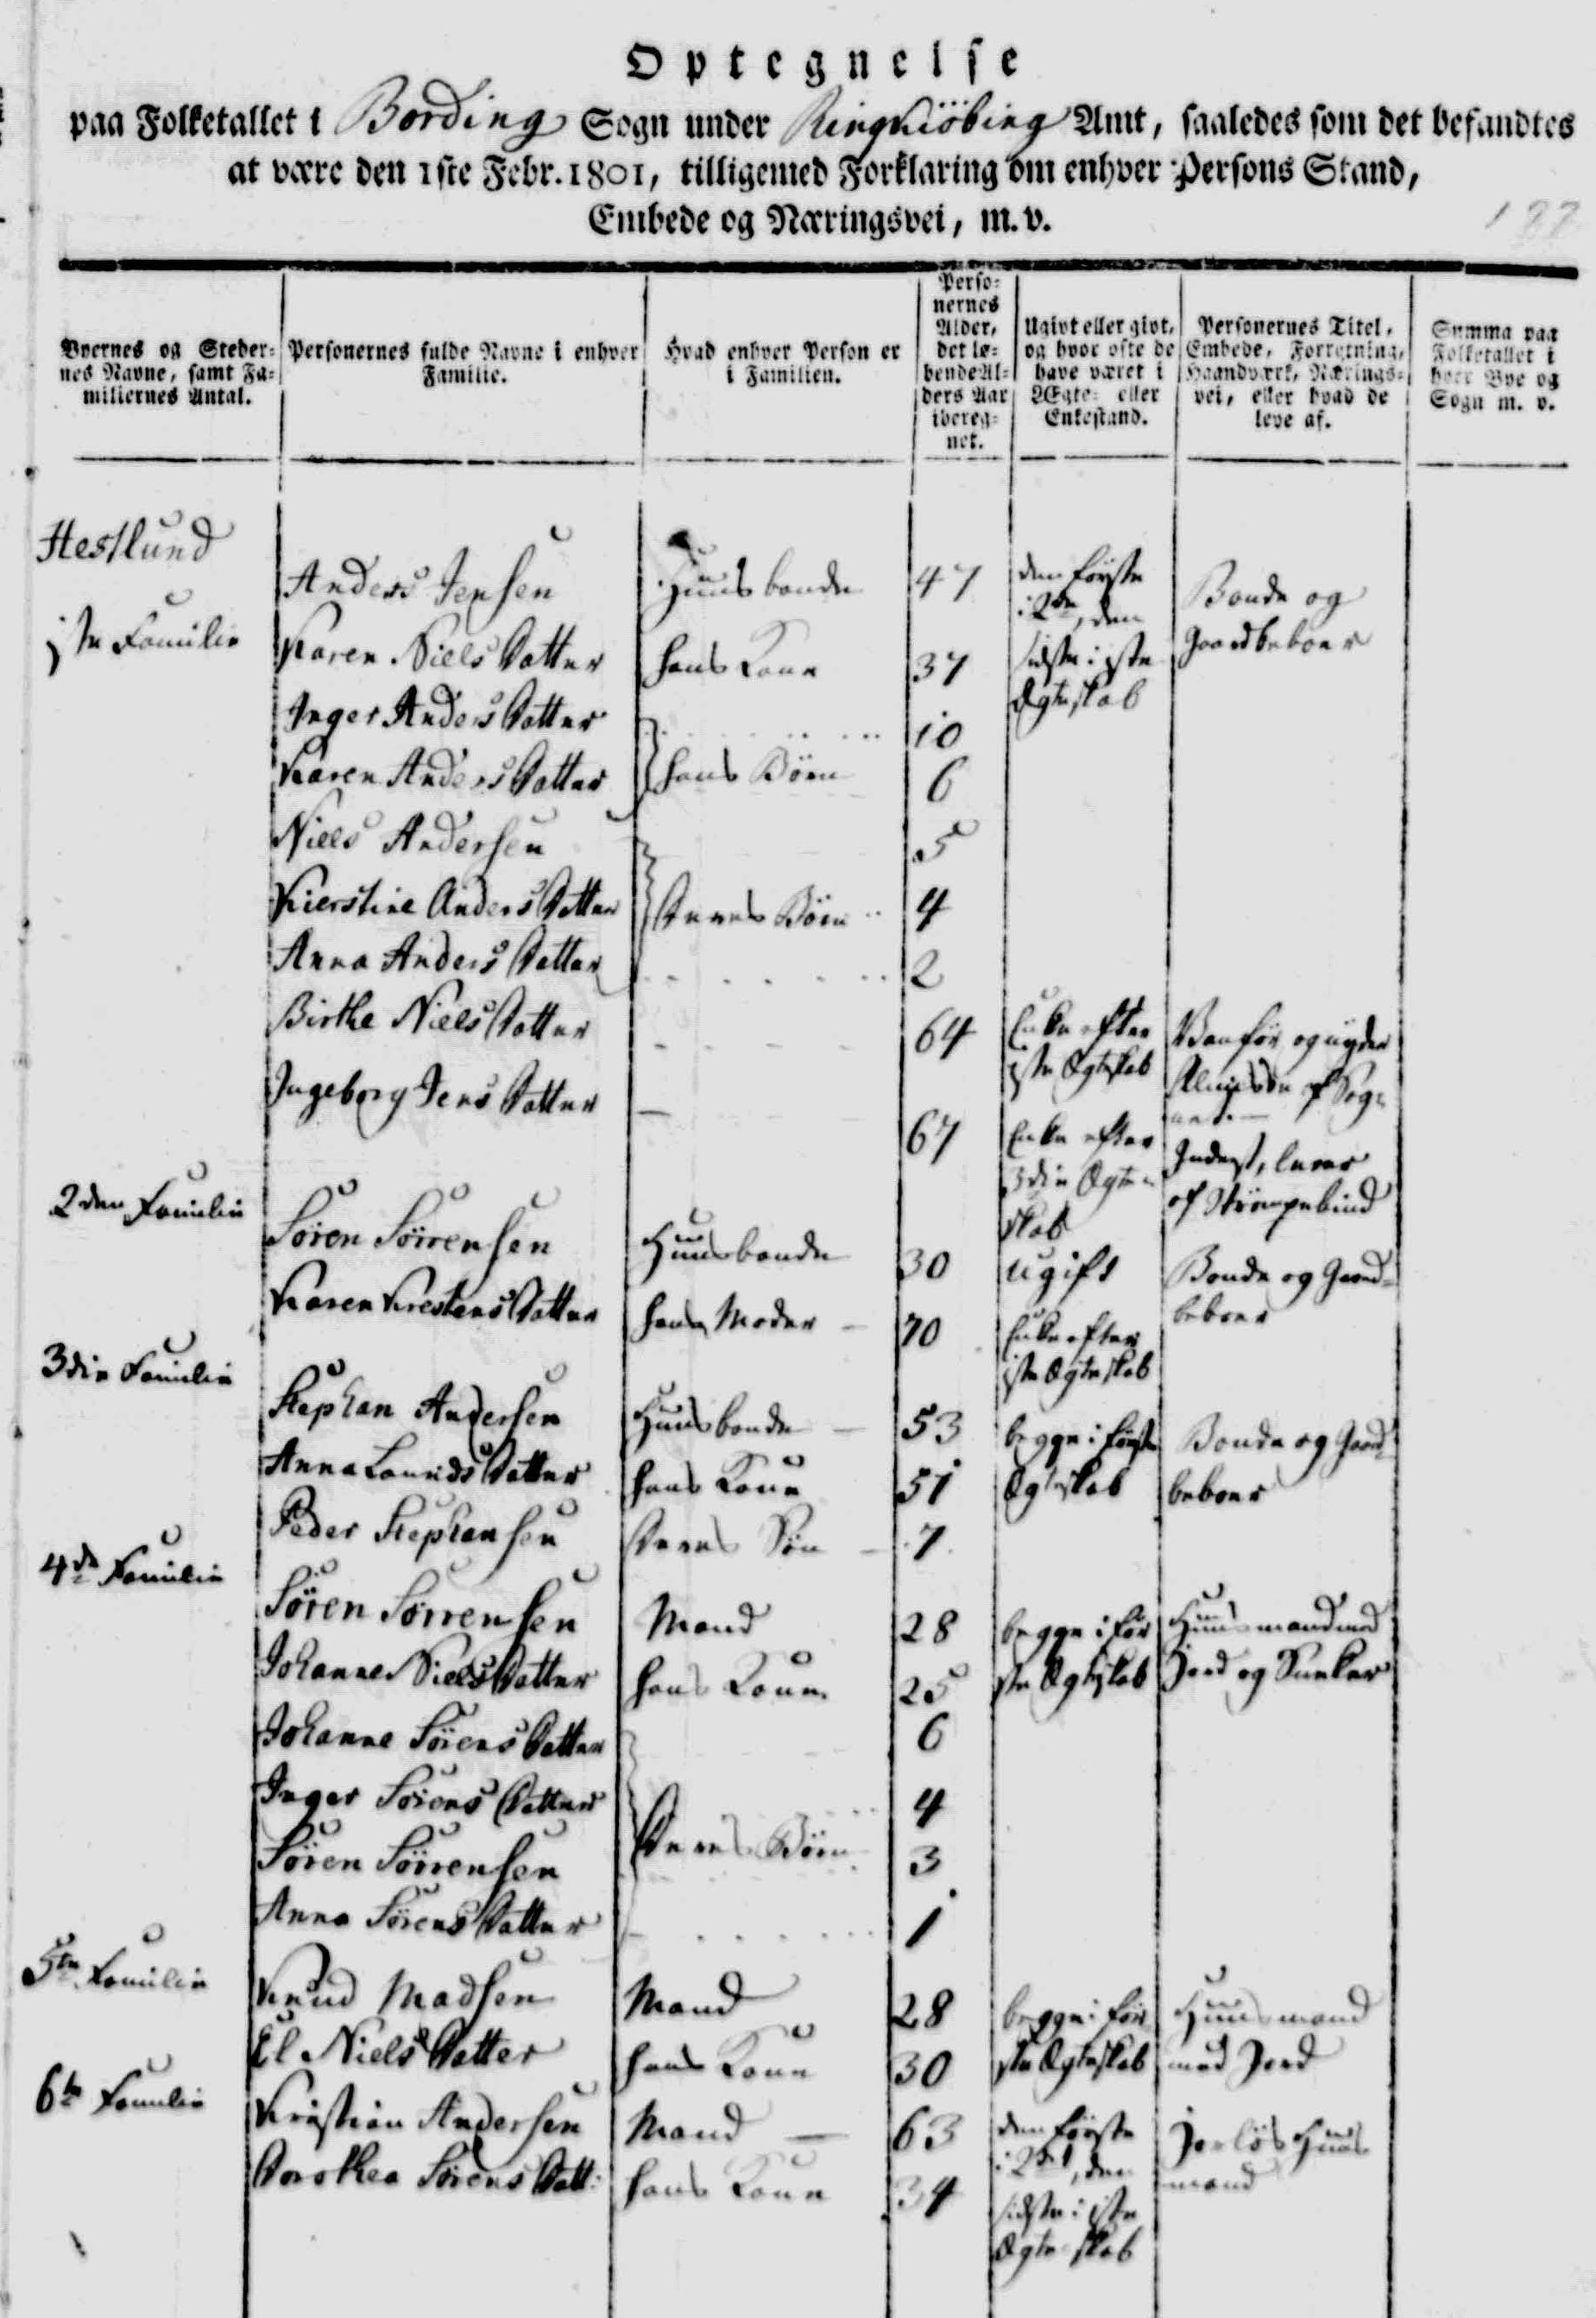 Optegnelse
paa Folketallet i Bording Sogn under Ringkiöbing Amt, saaledes som det befandtes
at være den 1ste Febr. 1801, tilligemed Forklaring om enhver Persons Stand,
Embede og Næringsvei, m. v.
Byernes og Steder-
nes Navne, samt Fa-
miliernes Antal.
Personernes fulde Navne i enhver
Familie.
Hvad enhver Person er
i Familien.
Perso-
nernes
Alder,
det lø-
bende Al-
ders Aar
ibereg-
net.
Ugivt eller givt,
og hvor ofte de
have været i
Ægte- eller
Enkestand.
Personernes Titel,
Embede, Forretning,
Haandværk, Nærings-
vei, eller hvad de
leve af.
Summa paa
Folketallet i
hver Bye og
Sogn m. v.
Hestlund
1ste Familie
Anders Jensen Huusbonde 47 den förste i 2det, den Bonde og
Karen Niels Datter hans Kone 37 sidste i 1ste Ægteskab Gaardbeboer
Inger Anders Datter 10
Karen Anders Datter hans Börn 6
Niels Andersen 5
Kierstine Anders Datter Deres Börn 4
Anna Anders Datter 2
Birthe Niels Datter 64 Enke efter 1ste Ægteskab Vanför og nyder Almisse af Sognet
Ingeborg Jens Datter 67 Enke efter 3die Ægteskab Inderst, lever af Strömpebind
2den Familie
Sören Sörrensen Huusbonde 30 ugift Bonde og Gaard-
Karen Krestens Datter hans Moder 70 Enke efter 1ste Ægteskab beboer
3die Familie
Stephan Andersen Huusbonde 53 begge i förste Bonde og Gaard-
Anna Laurids Datter hans Kone 51 Ægteskab beboer
Peder Stephansen Deres Sön 7
4de Familie
Sören Sörrensen Mand 28 begge i för- Huusmand med
Johanne Niels Datter hans Kone 25 ste Ægteskab Jord og
Johanne Sörens Datter 6
Inger Sörens Datter 4
Sören Sörrensen Deres Börn 3
Anna Sörens Datter 1
5te Familie
Knud Madsen Mand 28 begge i för- Huusmand
El Niels Datter hans Kone 30 ste Ægteskab med Jord
6te Familie
Kristian Andersen Mand 63 den förste i 2det, den Jorlös Huus-
Dorothea Sörens Datt: hans Kone 34 sidste i 1ste Ægteskab mand